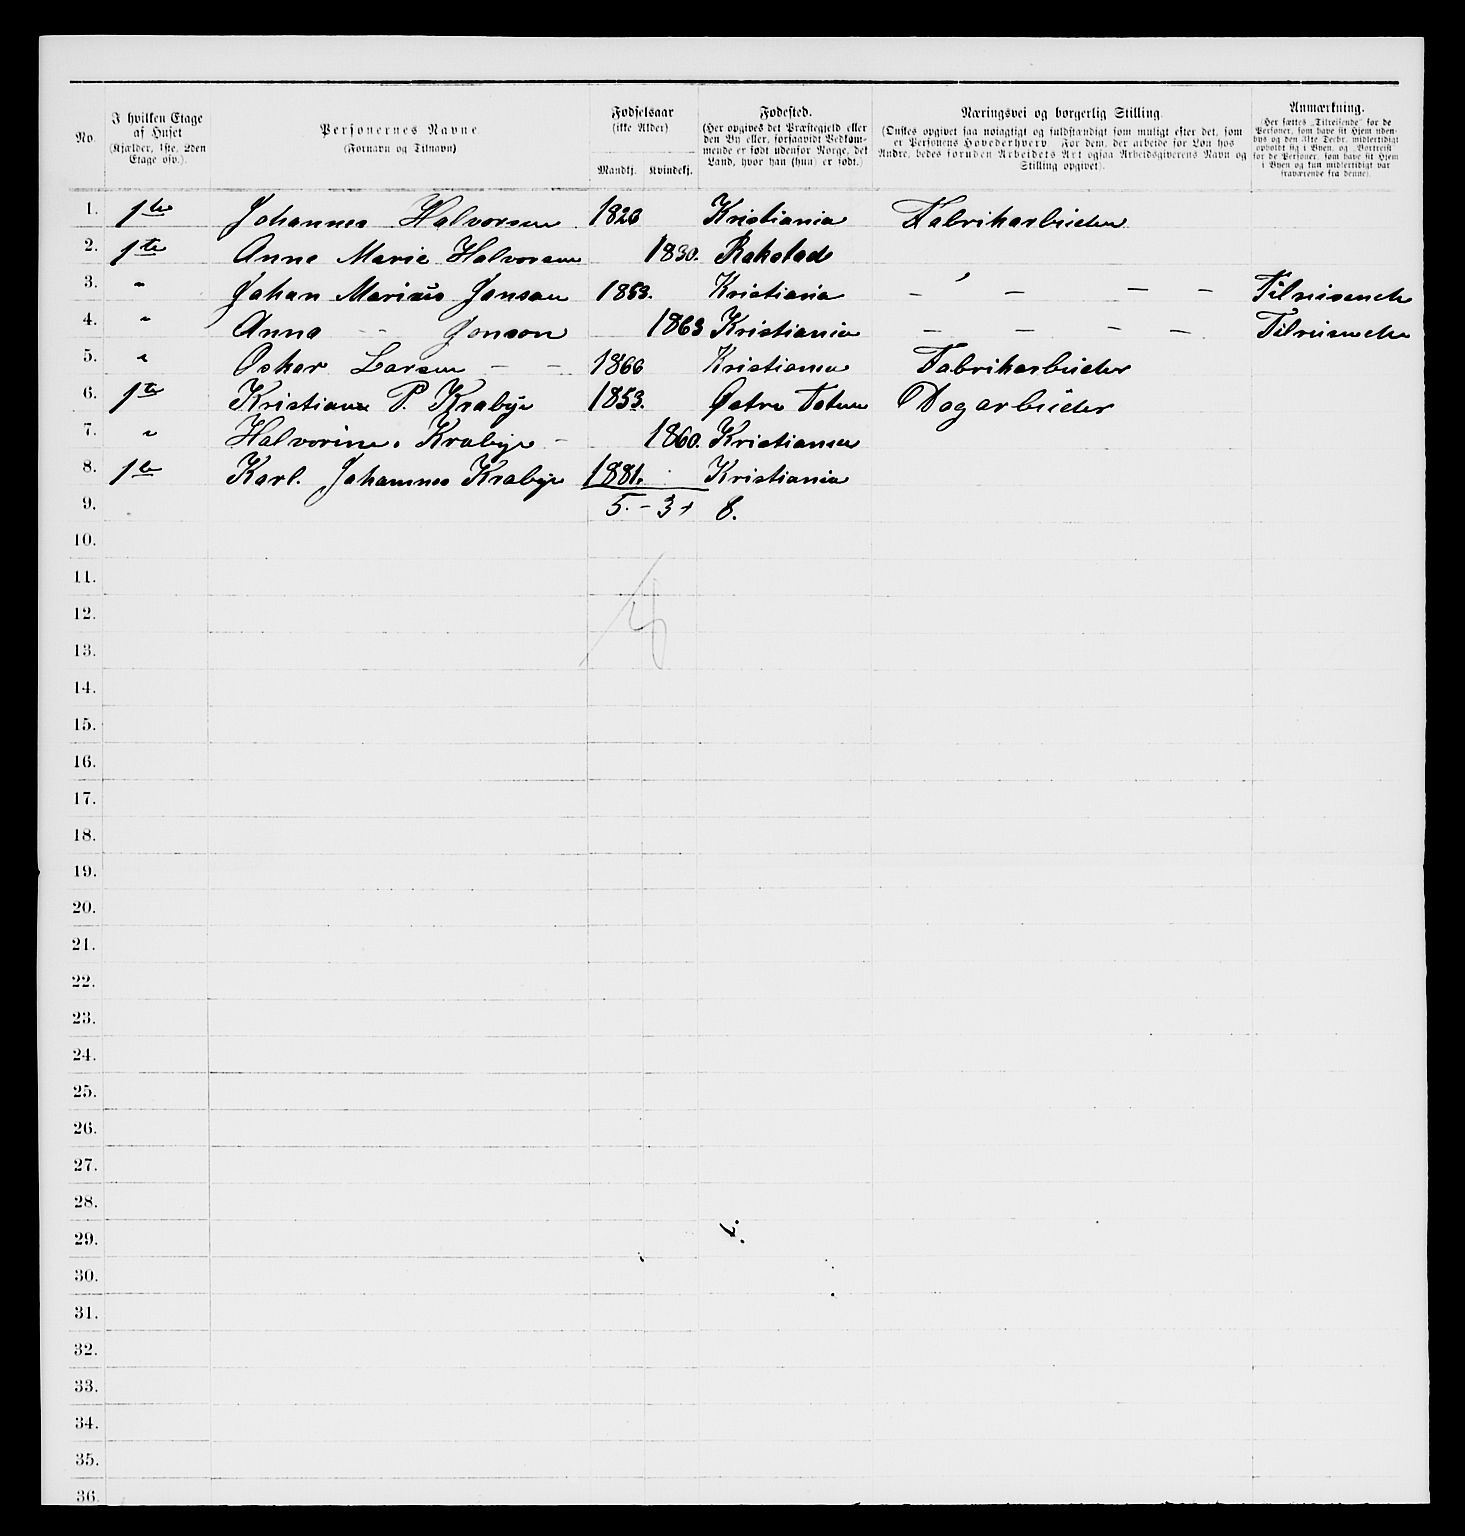 No. I hvilken Etage af Huset (Kjælder, 1ste, 2den Etage osv.). Personernes Navne. (Fornavn og Tilnavn) Fødselsaar (ikke Alder) Mandkj. Kvindekj. Fødested. (Her opgives det Præstegjeld eller den By eller, forsaavidt Vedkommende er født udenfor Norge, det Land, hvor han (hun) er født.) Næringsvei og borgerlig Stilling. (Ønskes opgivet saa nøiagtigt og fuldstændigt som muligt efter det, som er Personens Hovederhverv. For dem, der arbeide for Løn hos Andre, bedes foruden Arbeidets Art ogsaa Arbeidsgiverens Navn og Stilling opgivet). Anmærkning. (Her sættes „Tilreisende" for de Personer, som have sit Hjem udenbys og den 31te Decbr. midlertidigt opholdt sig i Byen, og „Bortreist" for de Personer, som have sit Hjem i Byen og kun midlertidigt var fraværende fra denne).
1. 1ste Johannes Halvorsen 1826 Kristiania Fabrikarbeider
2. 1ste Anne Marie Halvorsen 1830. Rakstad
3. " Johan Marius Jonsen 1853. Kristiania — ' — — — Tilreisende
4. " Anna — — Jonson 1863 Kristiania — — — — Tilreisende
5. " Oskar Larsen — — 1866 Kristiania Fabrikarbeider
6. 1ste Kristian P. Krabye 1853. Østre Toten Dagarbeider
7. " Halvorine. Krabye — 1860. Kristiania
8. 1ste Karl. Johannes Krabye 1881. Kristiania
9. 5. – 3 8.
10.
11.
12.
13.
14.
15.
16.
17.
18.
19.
20.
21.
22.
23.
24.
25.
26.
27.
28.
29.
30.
31.
32.
33.
34.
35.
36.